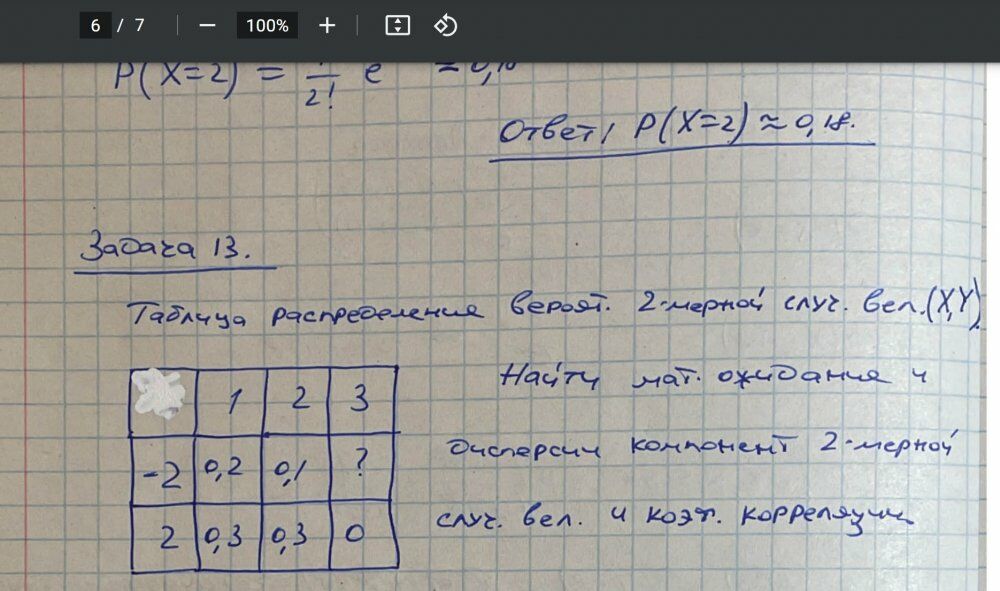 6 / 7 − 100% +
P(X=2) = 2! e ≈ 0,18
Ответ, P(X=2) ≈ 0,18.
Задача 13.
Таблица распределения вероят. 2-мерной случ. вел. (X,Y).
Найти мат. ожидания и
дисперсии компонент 2-мерной
случ. вел. и коэф. корреляции
1 2 3
-2 0,2 0,1 ?
2 0,3 0,3 0